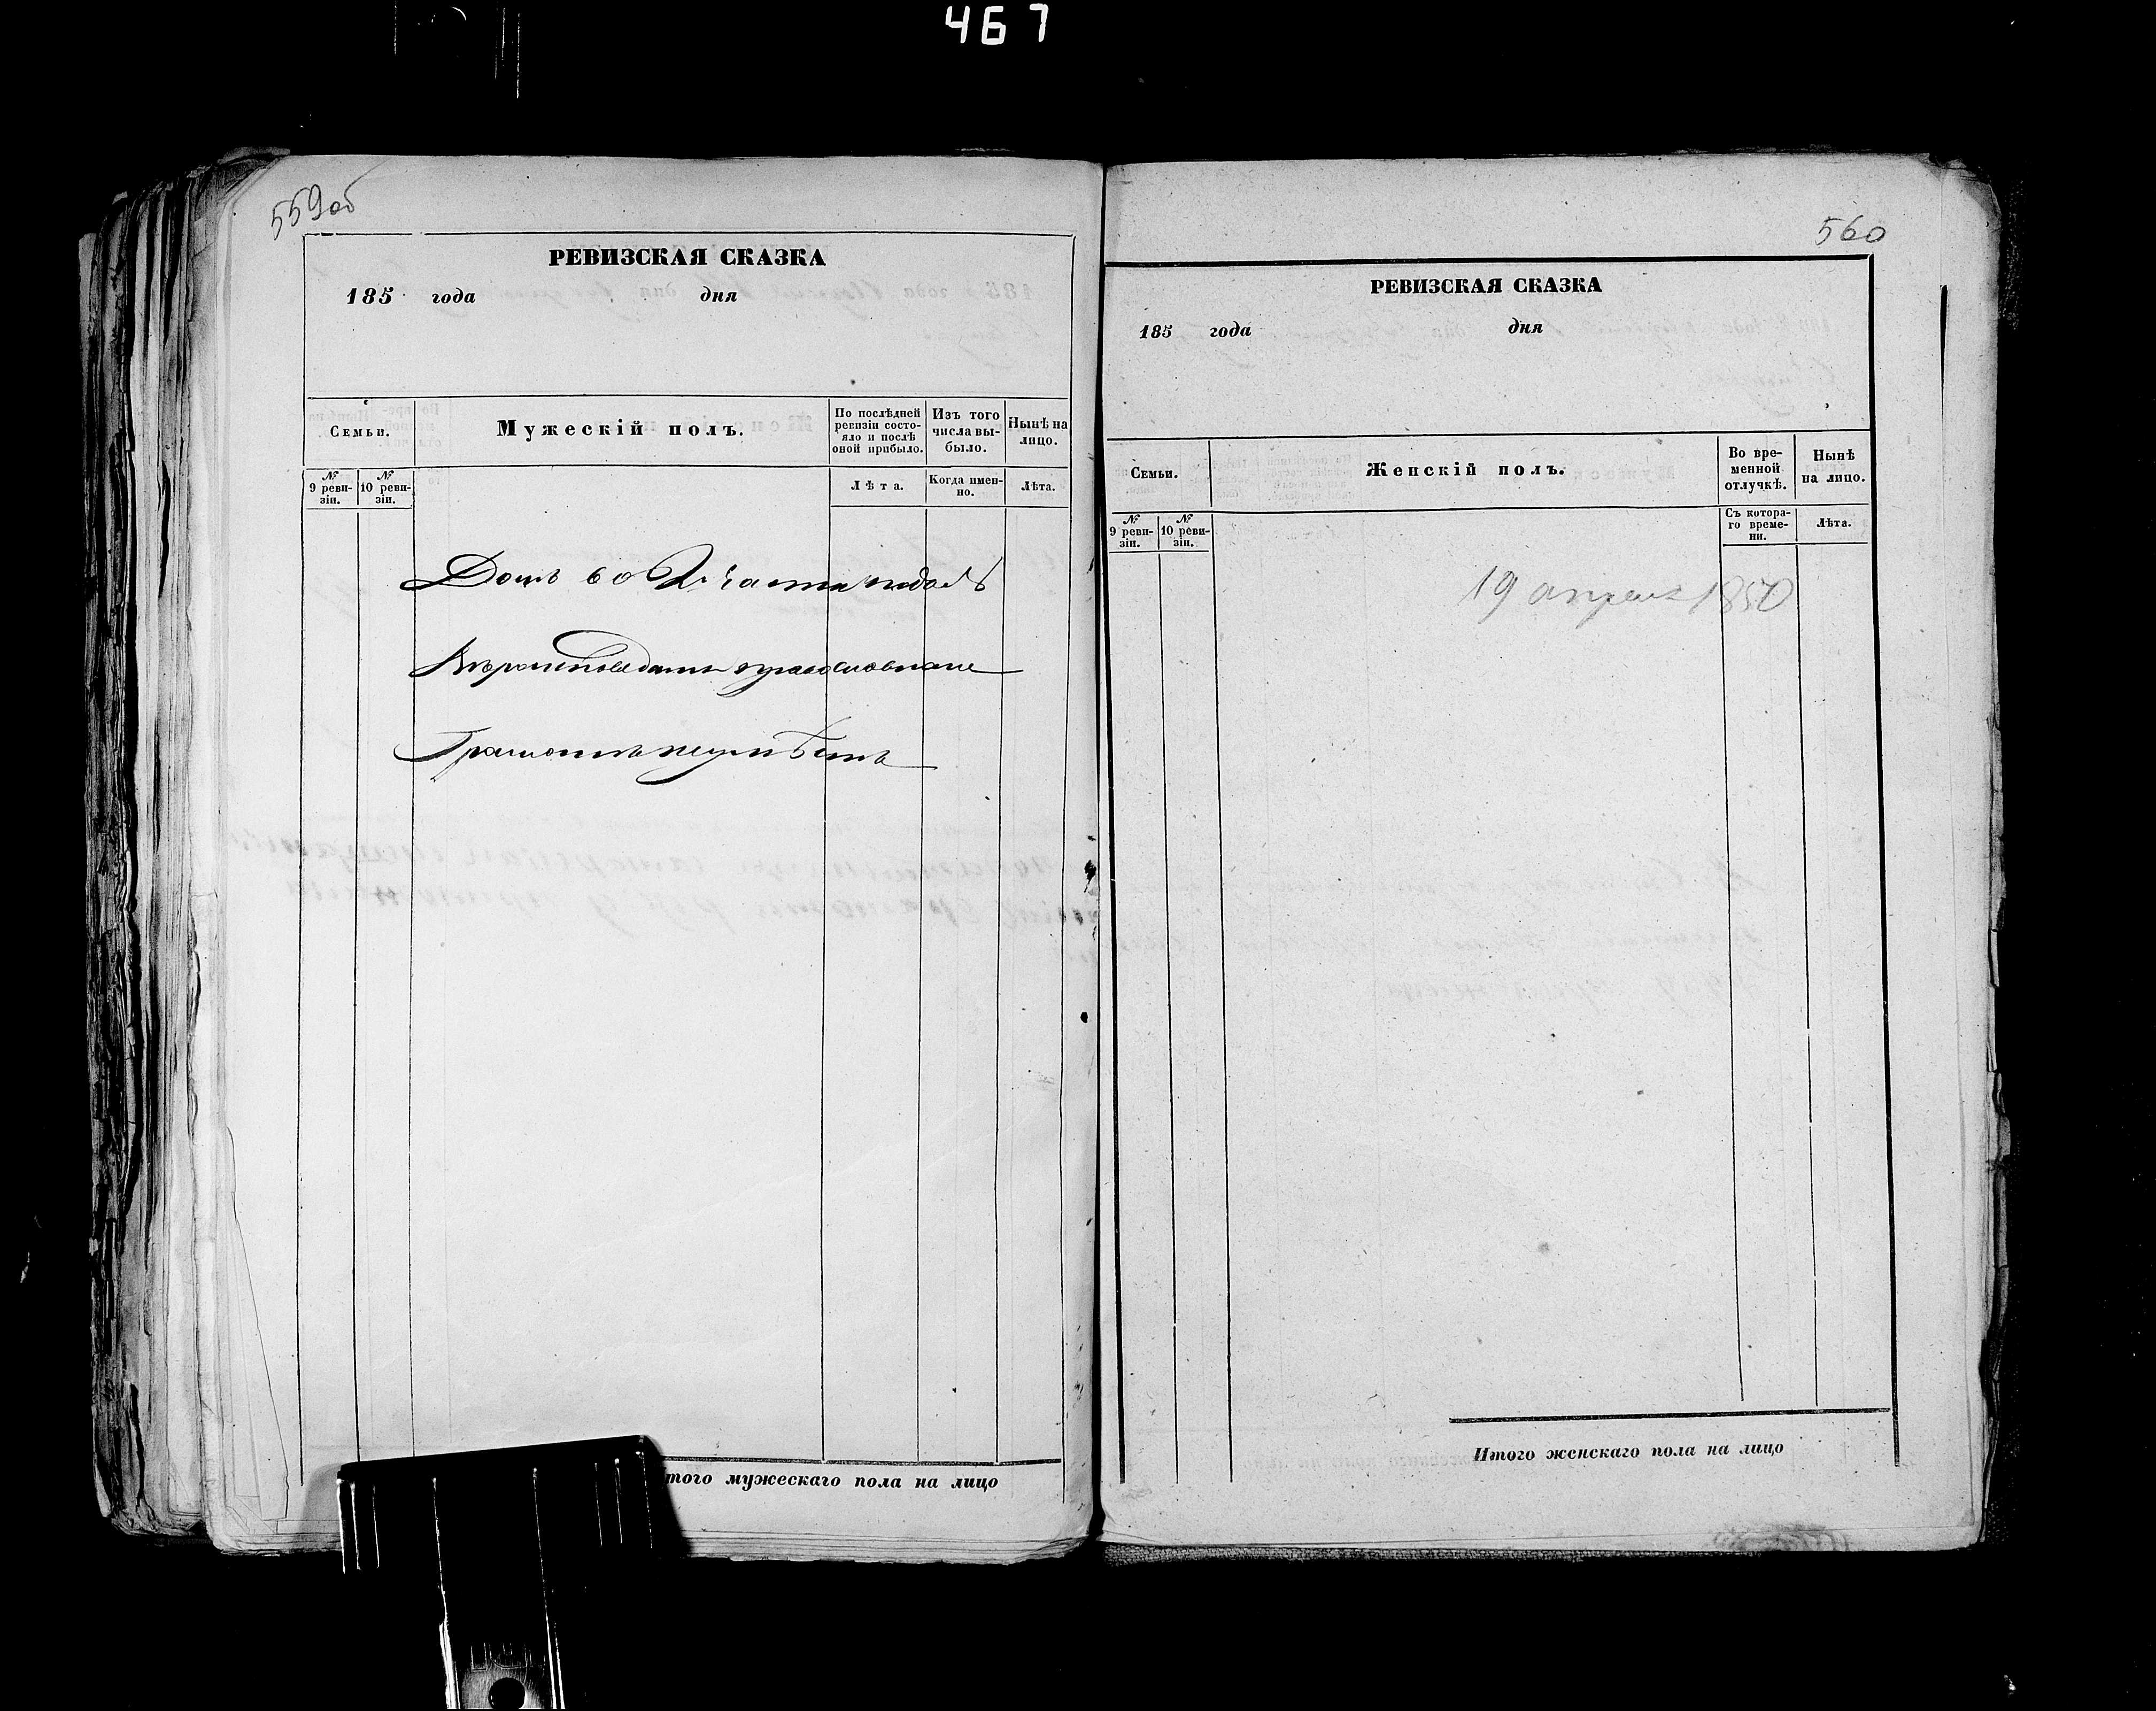 467
559об
РЕВИЗСКАЯ СКАЗКА
185 года дня
Семьи.
Мужескій полъ.
По послѣдней ревизіи состояло и послѣ оной прибыло.
Изъ того числа выбыло.
Нынѣ на лицо.
№ 9 ревизіи.
№ 10 ревизіи.
Лѣта.
Когда именно.
Лѣта.
Домъ во 2й части
Вѣроисповеданія православнаго
Грамоте неумѣетъ
того мужескаго пола на лицо
560
РЕВИЗСКАЯ СКАЗКА
185 года дня
Семьи.
Женскій полъ.
Во временной отлучкѣ.
Нынѣ на лицо.
№ 9 ревизіи.
№ 10 ревизіи.
Съ котораго времени.
Лѣта.
19 апреля 1850
Итого женскаго пола на лицо